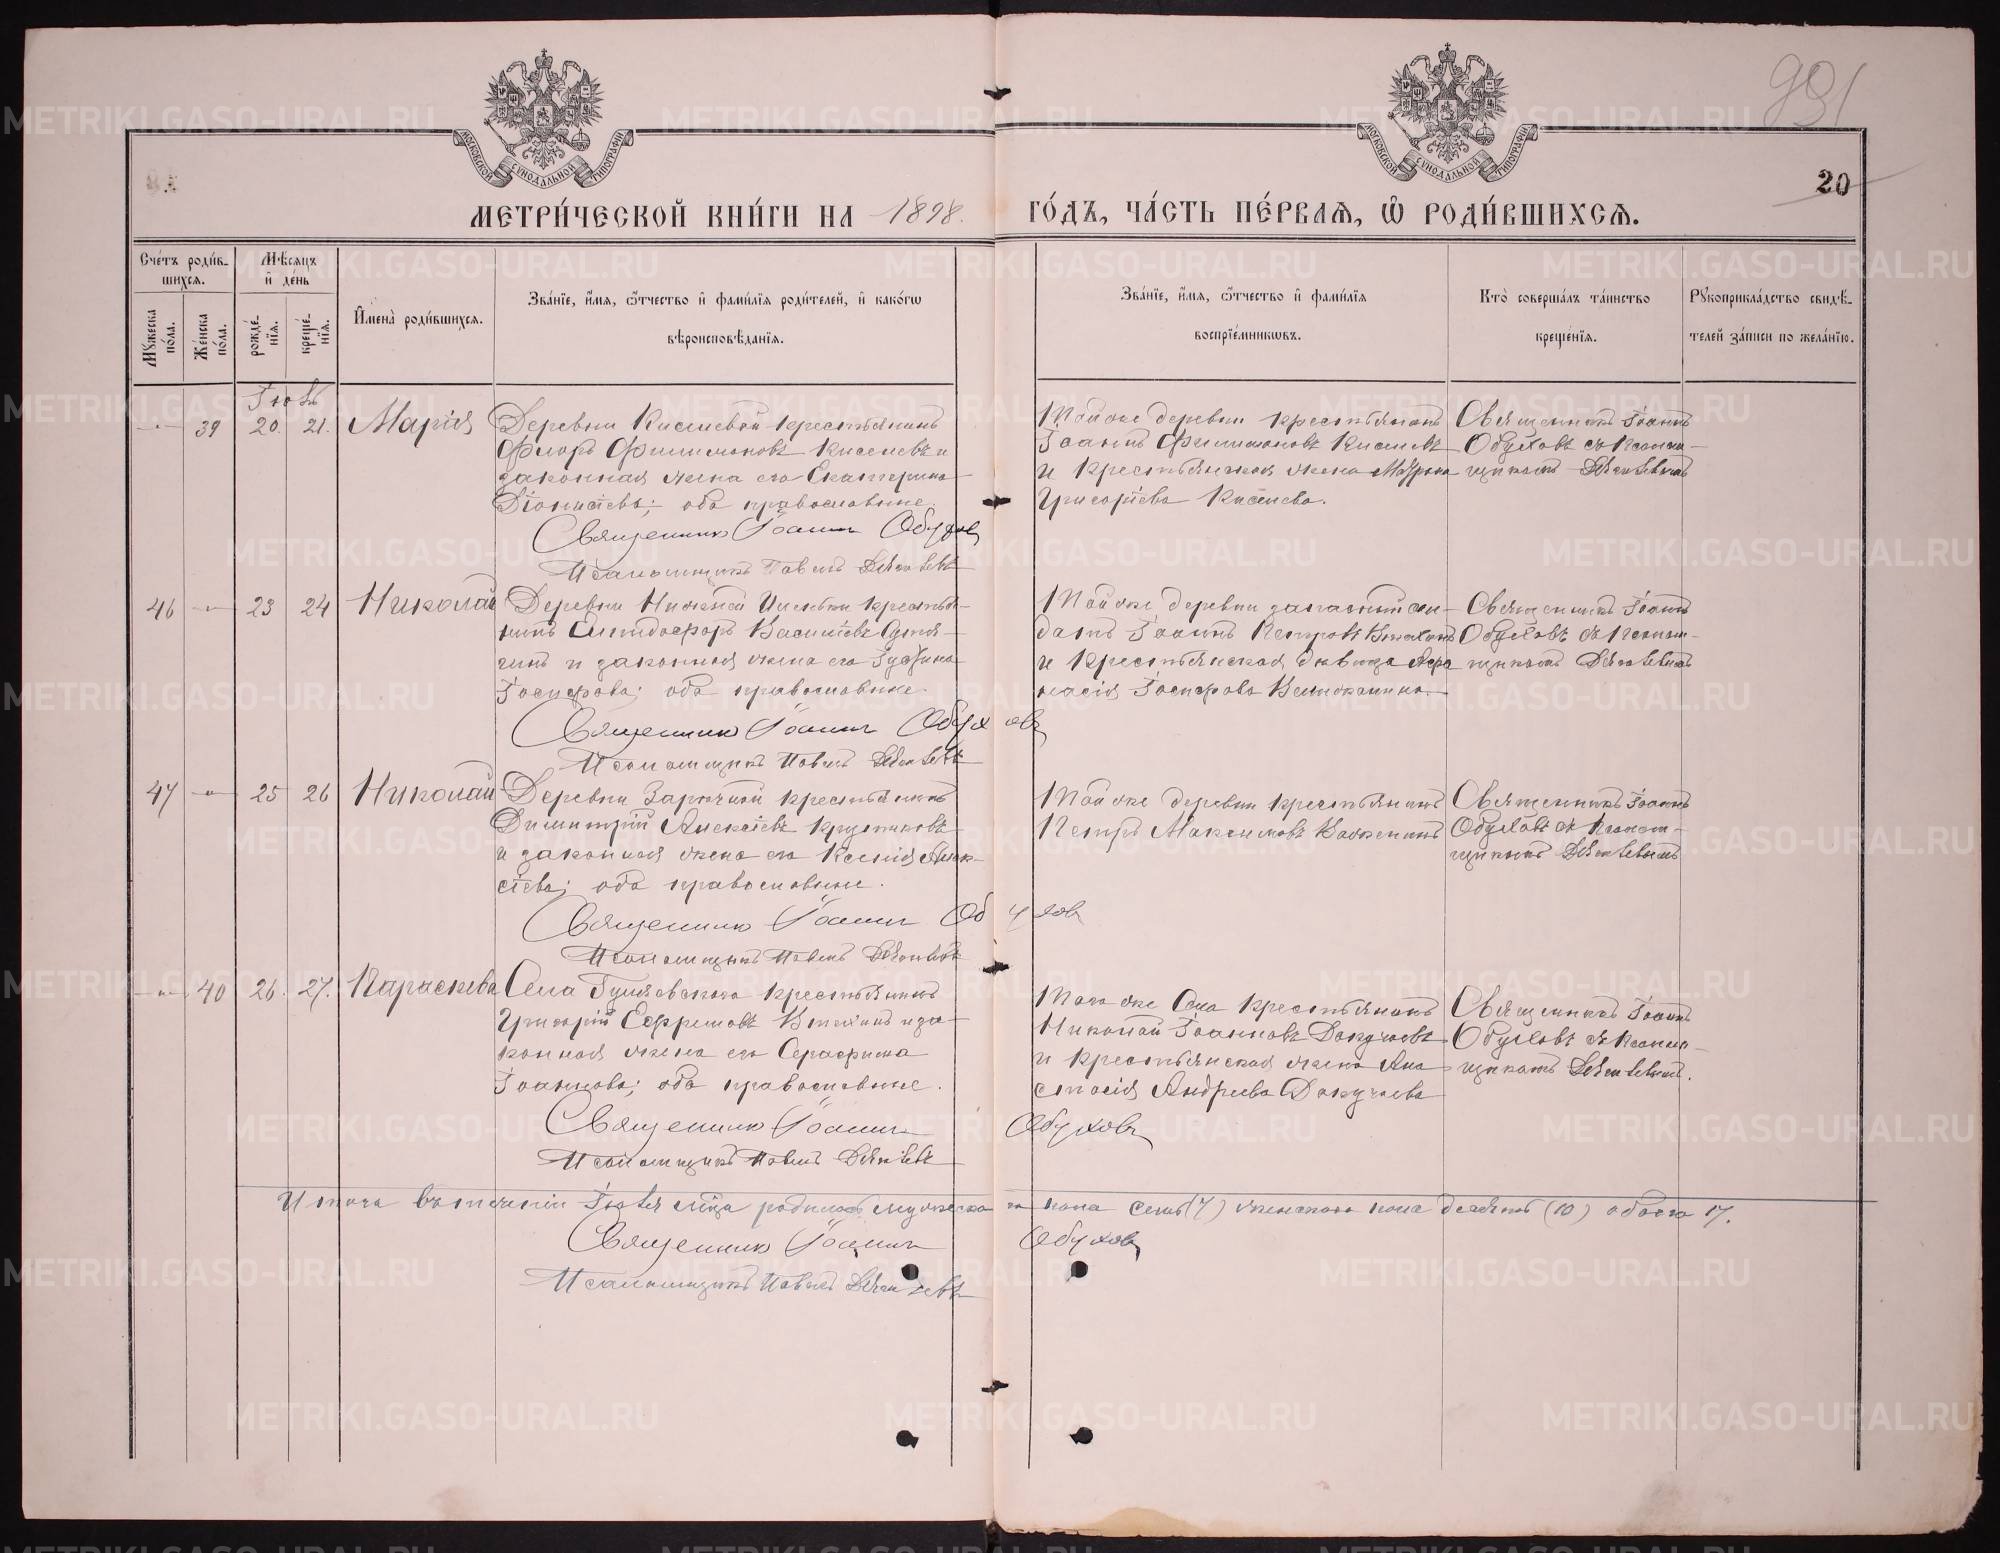 991
20
МОСКОВСКОЙ СУНОДАЛЬНОЙ ТИПОГРАФІИ
МОСКОВСКОЙ СУНОДАЛЬНОЙ ТИПОГРАФІИ
МЕТРИ́ЧЕСКОЙ КНИ́ГИ НА 1898. ГО́ДЪ, ЧА́СТЬ ПЕ́РВАѦ, Ѡ҆ РОДИ́ВШИХСѦ.
Сче́тъ роди́в-
шихсѧ.
Мꙋ́жеска по́ла.
Же́нска по́ла.
Мѣ́сѧцъ
и҆ де́нь
рожде́-
нїѧ.
креще́-
нїѧ.
И҆мена̀ роди́вшихсѧ.
Зва́нїе, и҆́мѧ, ѻ҆́тчество и҆ фамі́лїѧ роди́телей, и҆ како́гѡ
вѣроисповѣ́данїѧ.
Зва́нїе, и҆́мѧ, ѻ҆́тчество и҆ фамі́лїѧ
воспрїе́мникѡвъ.
Кто̀ соверша́лъ та́инство
креще́нїѧ.
Рꙋкоприкла́дство свидѣ́-
телей за́писи по жела́нїю.
Іюль
39 20. 21. Марія
Деревни Киселевой крестьянинъ
Флоръ Филимоновъ Киселевъ и
законная жена его Екатерина
Діонисіева; оба православные.
Священникъ Іоаннъ Обуховъ
Псаломщикъ Павелъ
Той же деревни крестьянинъ
Іоаннъ Филимоновъ Киселевъ
и крестьянская жена Мавра
Григорьева Киселева.
Священникъ Іоаннъ
Обуховъ съ Псалом-
щикомъ
46 23 24 Николай
Деревни Нижней крестья-
нинъ Василіевъ
и законная жена его
Іосифова; оба православные.
Священникъ Іоаннъ Обуховъ
Псаломщикъ Павелъ
Той же деревни запасный сол-
датъ Іоаннъ Петровъ
и крестьянская дѣвица Афа-
насія Іосифова
Священникъ Іоаннъ
Обуховъ съ Псалом-
щикомъ
47 25 26 Николай
Деревни Заречной крестьянинъ
Димитрій Алексіевъ Кругликовъ
и законная жена его Ксенія Алек-
сіева; оба православные.
Священникъ Іоаннъ Обуховъ
Псаломщикъ Павелъ
Той же деревни крестьянинъ
Петръ Максимовъ
Священникъ Іоаннъ
Обуховъ съ Псалом-
щикомъ
40 26. 27. Параскева
Села крестьянинъ
Григорій Ефремовъ и за-
конная жена его Серафима
Іоаннова; оба православные.
Священникъ Іоаннъ Обуховъ
Псаломщикъ Павелъ
Того же Села крестьянинъ
Николай Іоанновъ Докучаевъ
и крестьянская жена Ана-
стасія Андреева Докучаева
Священникъ Іоаннъ
Обуховъ съ Псалом-
щикомъ
Итого въ теченіи Іюля мѣсяца родилось мужеска го пола семь (7) женскаго пола десять (10) обоего 17.
Священникъ Іоаннъ Обуховъ
Псаломщикъ Павелъ
METRIKI.GASO-URAL.RU